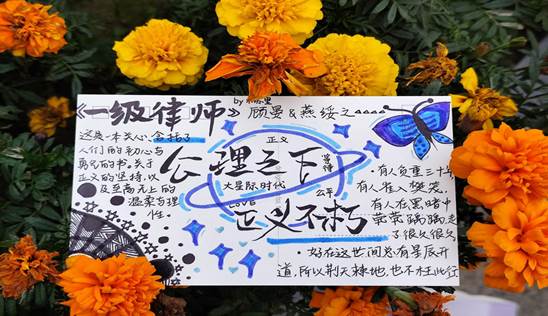 《一级律师》
by木苏里
顾晏&燕绥之
这是一本关心,含括了
人们的初心与
勇气的书。关于
正义的坚持,以
及至高无上的
温柔与理
性。
正义
公理之下
大星际时代
公平
LOVE
正义不朽
·有人负重三十年
有人往入樊笼
有人在黑暗中
茕茕踽踽走
了很久很久
·好在这世间总有星辰开
道,所以荆天棘地,也不枉此行